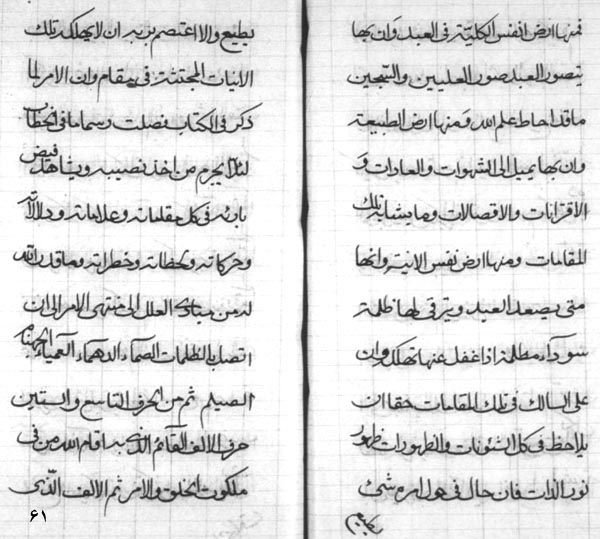 فمنها ارض انفس الكلیّة فی العبد وَان بها
یتصور العبد صور العلیین و السّجین
ما قد احاط علم الله وَ منها ارض الطبیعة
وان بها یمیل الی الشهوات و العادات وَ
الاقترانات و الاتصالات و ما یشابه تلك
المقامات و منها ارض نفس الانیة وانها
متی یصعد العبد و یترقی لها ظلمة
سوداء مظلمة اذا غفل عنها تهلك و ان
علی السالك فی تلك المقامات حقا ان
یلاحظ فی كل الشئونات و الظهورات ظهور
نور الذات فان حال فی هول امره شیئ
یطیع
یطیع و الا اعتصم بربه ان لا یهلك تلك
الانیات المجتثة فی مقام وان الامر لما
ذكر فی الكتاب فصلت رسما ما فی الخطاب
لئلا یحرم من اخذ نصیبه و یشاهد فیض
بارئه فی كل مقاماته و علاماته و دلالاته
و حركاته و لحظاته و خطراته و ما قدر الله
له من مبادی العلل الی منتهی الامر الی ان
اتصل بالظلمات الصماء الدهماء العمیاء
الصیلم ثم من الحرف التاسع و الستین
حرف الالف القائم الذی به اقام الله من فی
ملكوت الخلق و الامر ثم الالف الذی
۶۱